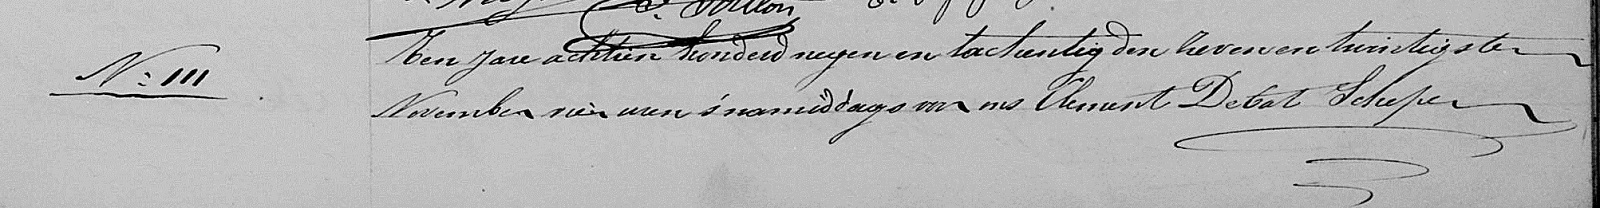 Nº 111
Ten jare achtien honderd negen en tachentig den zeven en twintigsten
November vier uren s'namiddags voor ons Clement Debat Schepen